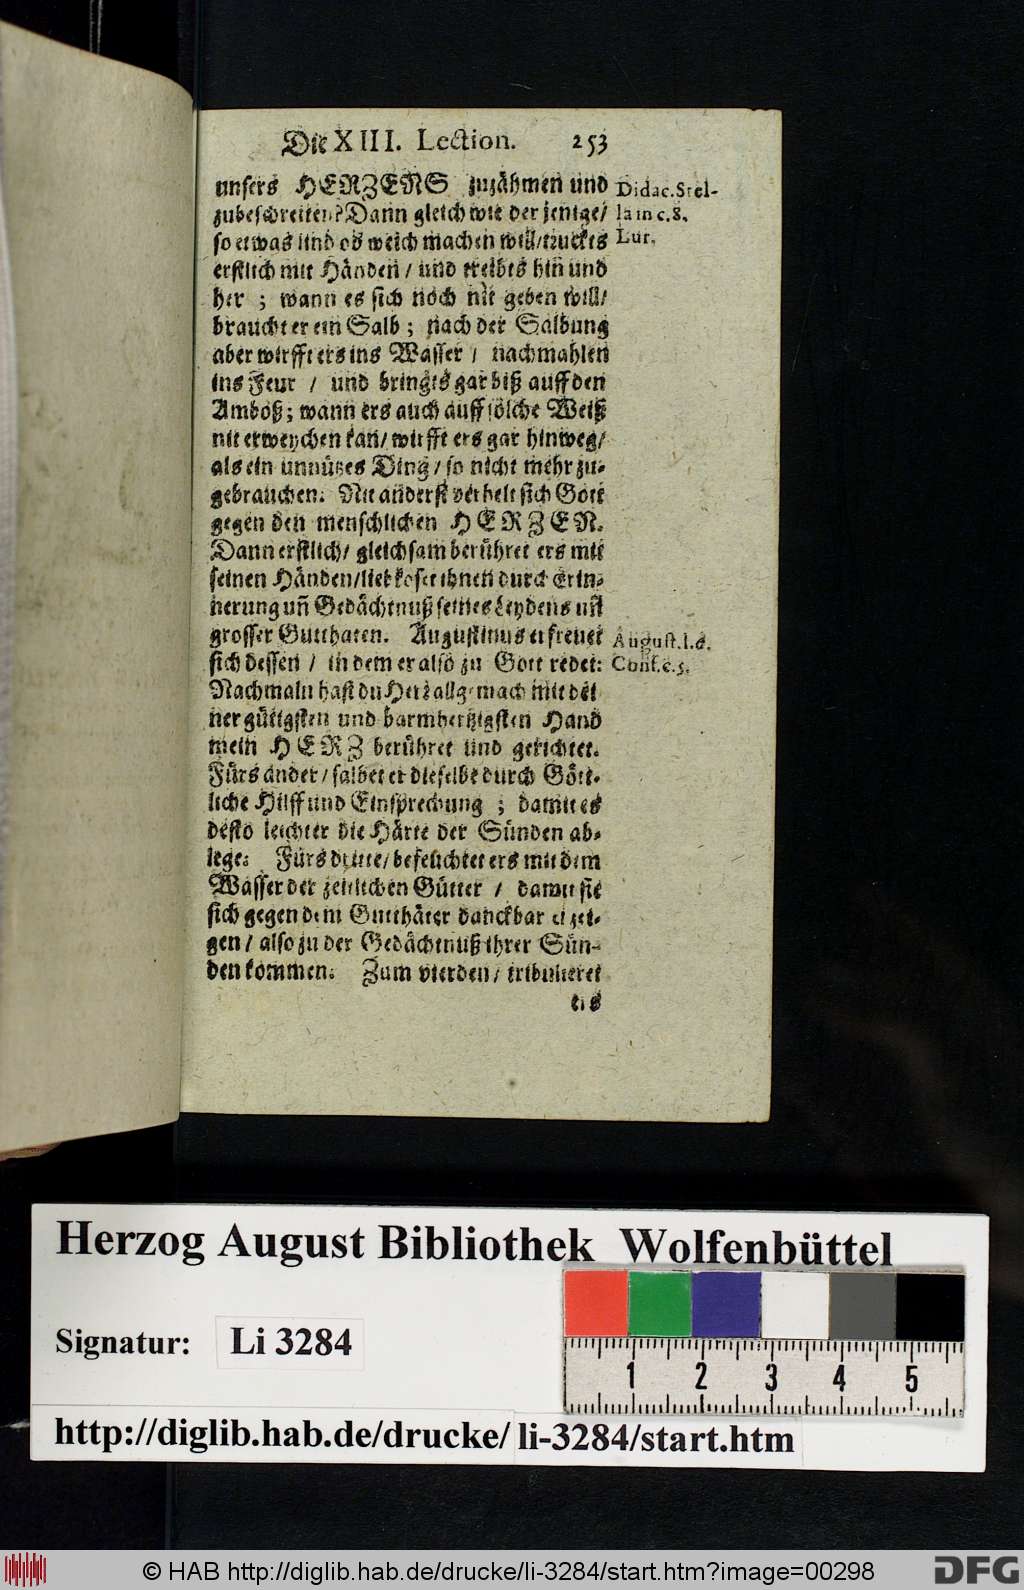 Die XIII. Lection. 253
unsers HERZENS zuzähmen und
zubeschreiten? Dann gleich wie der jenige/
so etwas lind os weich machen will/ truckts
erstlich mit Händen / und treibts hin und
her ; wann es sich noch nit geben will/
braucht er ein Salb ; nach der Salbung
aber wirfft ers ins Wasser / nachmahlen
ins Feur / und bringts gar biß auff den
Amboß; wann ers auch auff solche Weiß
nit erweychen kan/ wirfft ers gar hinweg/
als ein unnützes Ding / so nicht mehr zu-
gebrauchen. Nit anderst verhelt sich Gott
gegen den menschlichen HERZEN.
Dann erstlich/ gleichsam berühret ers mit
seinen Händen/ liebkoset ihnen durch Erin-
nerung uñ Gedächtnuß seines Leydens uñ
grosser Gutthaten. Augustinus erfreuet
sich dessen / in dem er also zu Gott redet:
Nachmaln hast du Herz allgemach mit dei
ner gütigsten und barmhertzigsten Hand
mein HERZ berühret und gerichtet.
Fürs ander / salbet er dieselbe durch Gött-
liche Hilff und Einsprechung ; damit es
desto leichter die Härte der Sünden ab-
lege. Fürs dritte/ befeuchtet ers mit dem
Wasser der zeitlichen Gütter / damit sie
sich gegen dem Gutthäter danckbar erzei-
gen / also zu der Gedächtnuß ihrer Sün-
den kommen. Zum vierden / tribulieret
ers
Didac. Stel-
la in c. 8.
Luc.
August. l. 6.
Conf. c. 5.
Herzog August Bibliothek Wolfenbüttel
Signatur: Li 3284
1 2 3 4 5
http://diglib.hab.de/drucke/ li-3284/start.htm
© HAB http://diglib.hab.de/drucke/li-3284/start.htm?image=00298
DFG